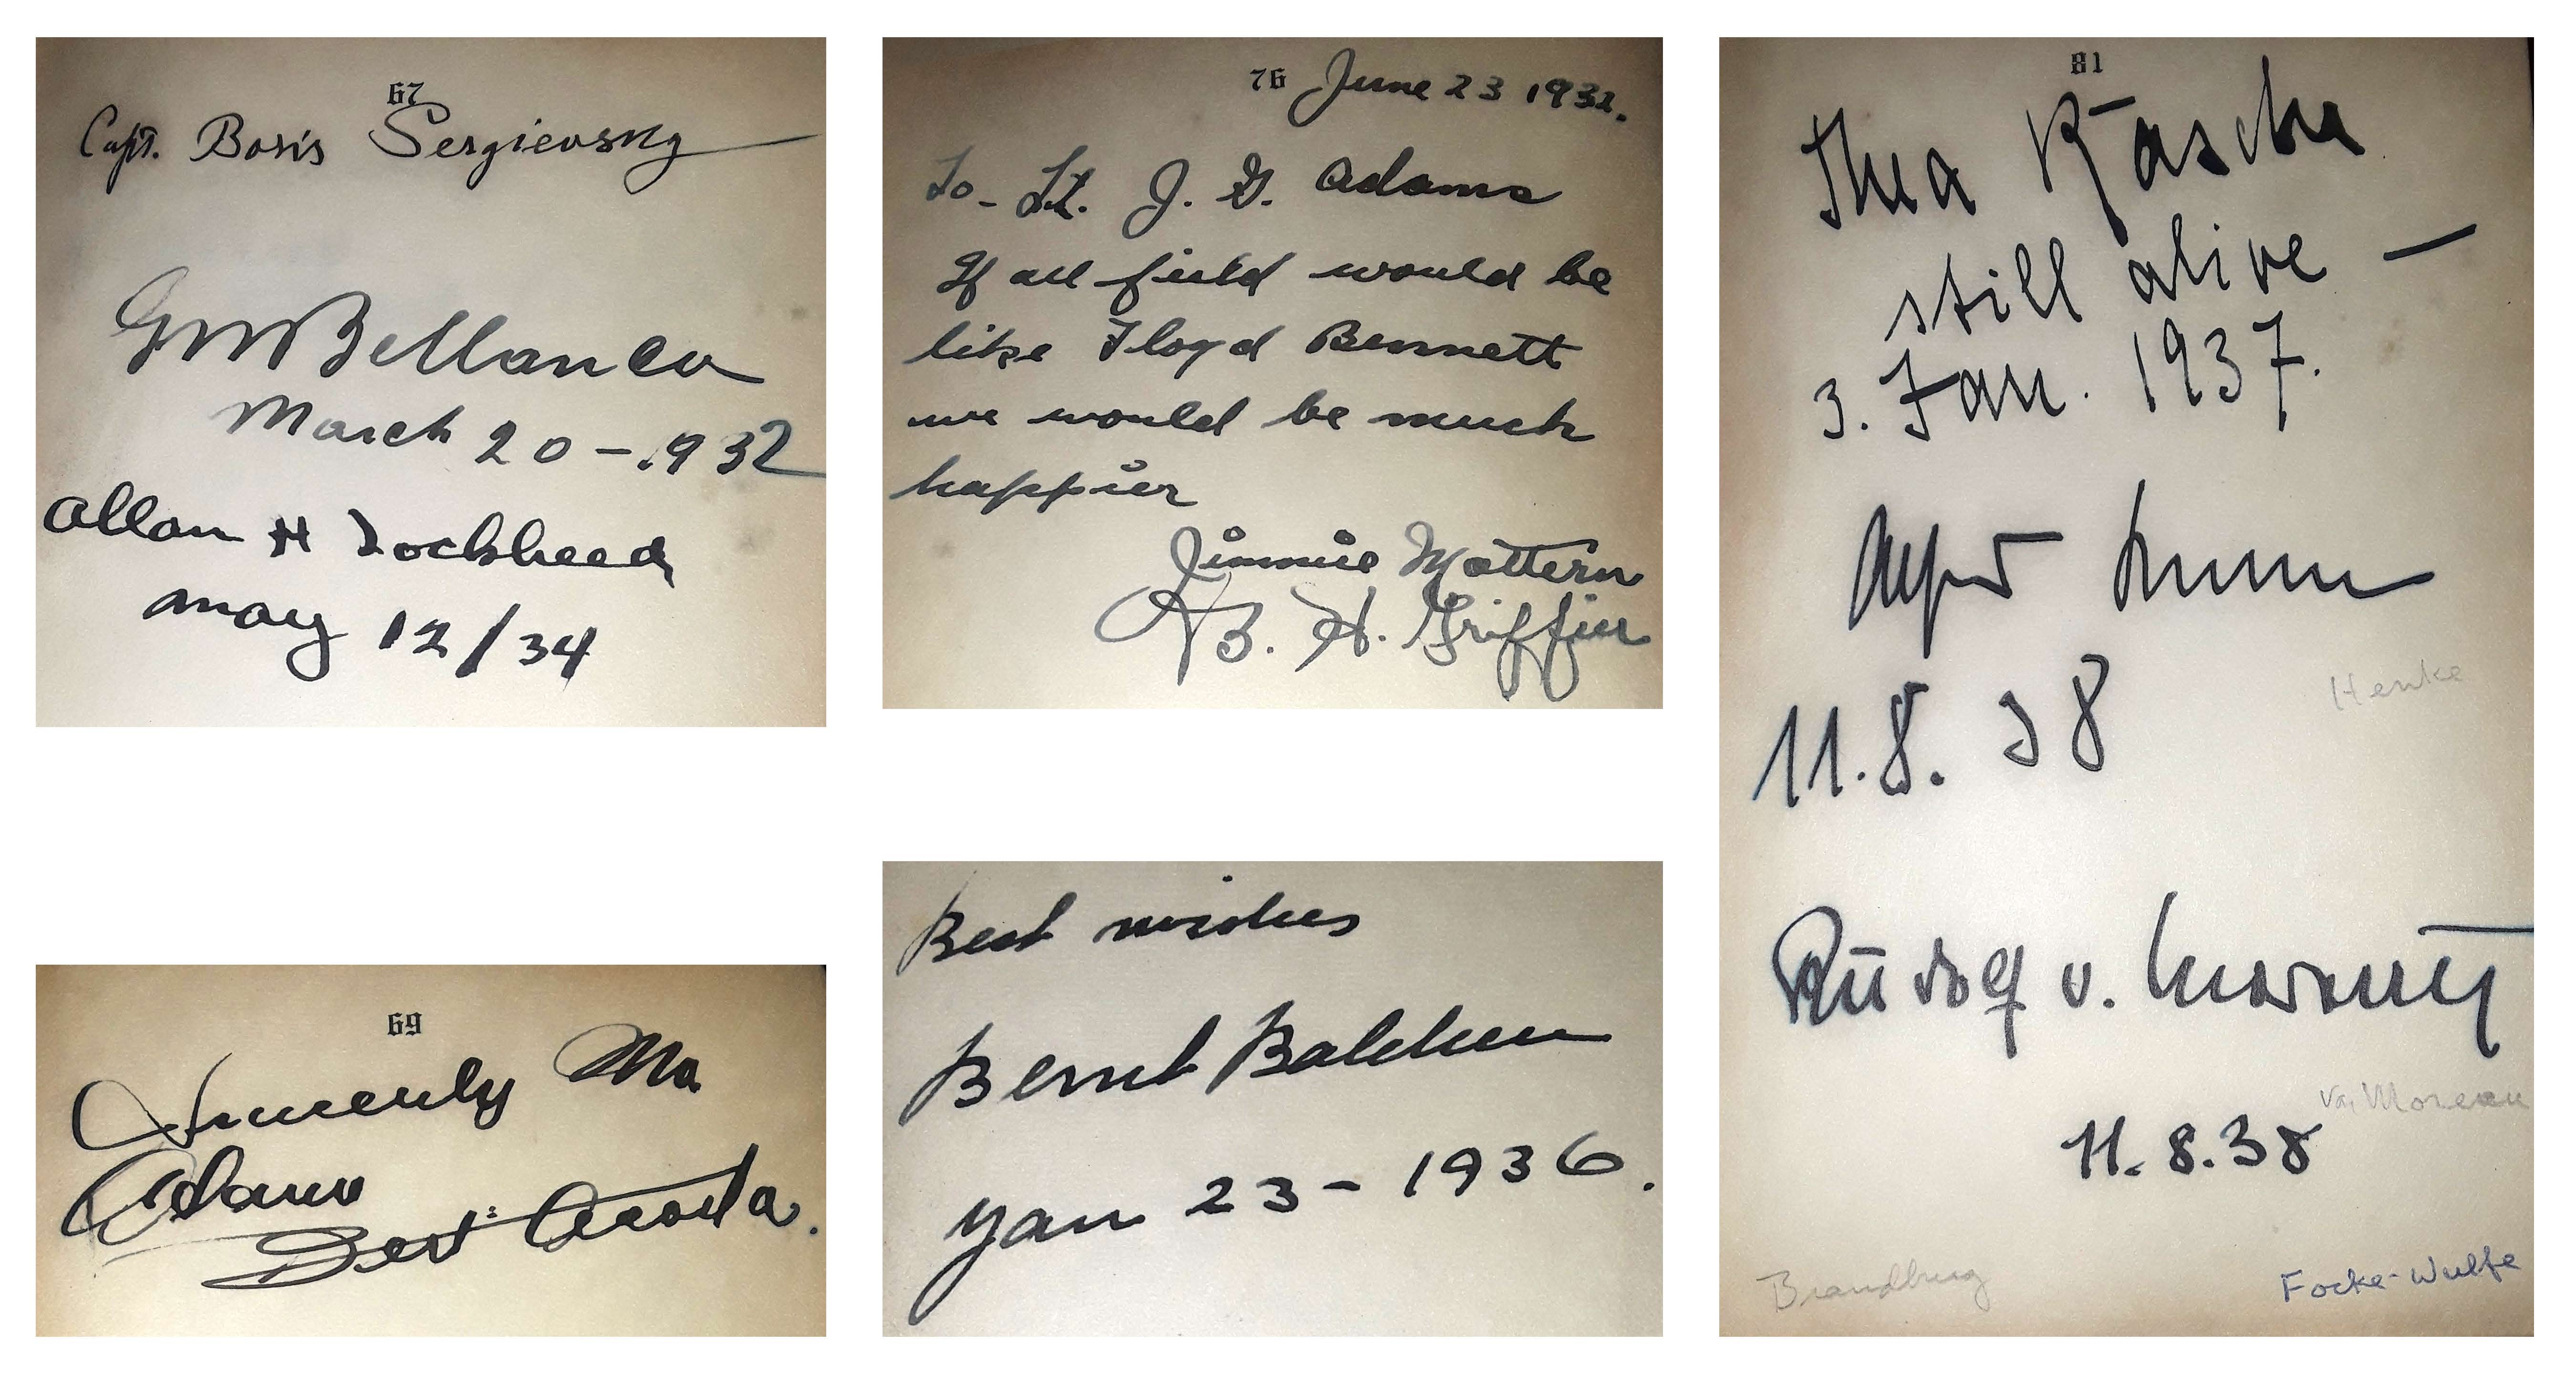 67
Capt. Boris Sergievsky
G M Bellanca
March 20 - 1932
Allan H Lockheed
may 12/34
69
Sincerely Ma
Adams
Bert Acosta.
76 June 23 1932.
To - Lt. J. G. Adams
If all field would be
like Floyd Bennett
we would be much
happier
Jimmie Mattern
B. H. Griffin
Best wishes
Bernt Balchen
Jan 23 - 1936.
81
Thea Rasche
still alive —
3. Jan. 1937.
Alfred
11.8.38
Henke
Rudolf v. Moreau
von Moreau
11.8.38
Brandburg
Focke-Wulfe